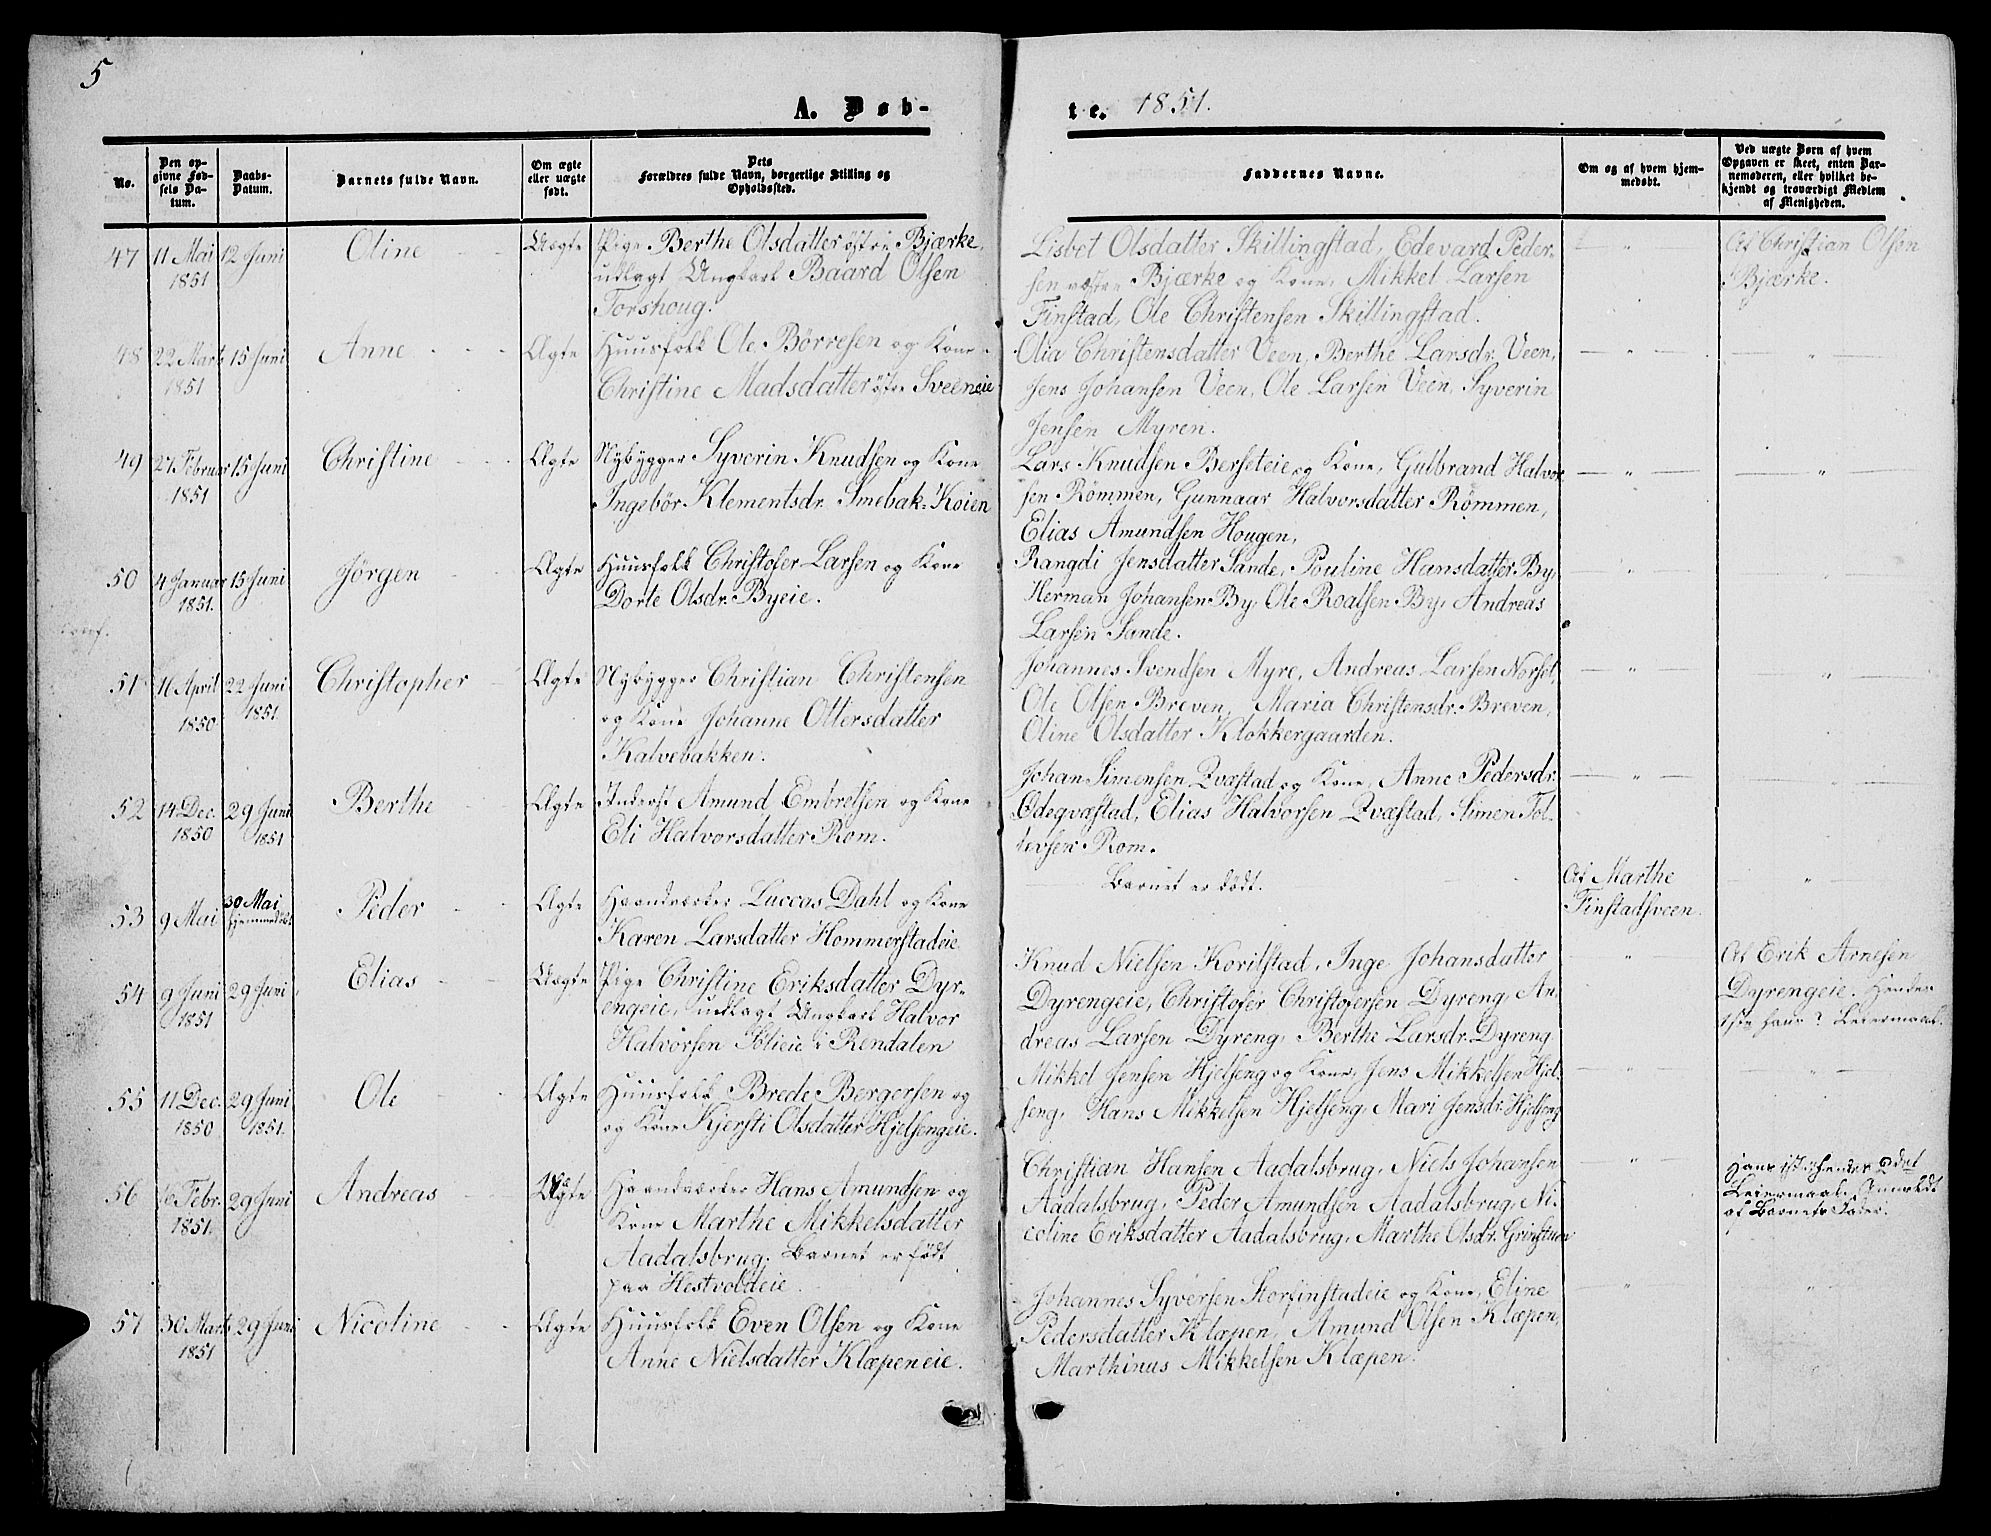 5
A. Døb-
te. 1851.
No.
Den op-
givne Fød-
sels Da-
tum.
Daabs-
Datum.
Barnets fulde Navn.
Om ægte
eller uægte
født.
Dets
Forældres fulde Navn, borgerlige Stilling og
Opholdssted.
Faddernes Navne.
Om og af hvem hjem-
medøbt.
Ved uægte Børn af hvem
Opgaven er skeet, enten Bar-
nemoderen, eller hvilket be-
kjendt og troværdigt Medlem
af Menigheden.
47 11 Mai 1851 12 Juni Oline Uægte
Pige Berthe Olsdatter østre Bjærke,
udlagt Ungkarl Baard Olsen
Torshoug.
Lisbet Olsdatter Skillingstad, Edevard Peder-
sen østre Bjærke og Kone, Mikkel Larsen
Finstad, Ole Christensen Skillingstad.
Af Christian Olsen
Bjærke.
48 22 Marts 1851 15 Juni Anne Ægte
Huusfolk Ole Børresen og Kone
Christine Madsdatter østre Sveeneie
Olia Christensdatter Veen, Berthe Larsdr. Veen,
Jens Johansen Veen, Ole Larsen Veen, Syverin
Jensen Myren.
49 27 Februar 1851 15 Juni Christine Ægte
Nybygger Syverin Knudsen og Kone
Ingebör Klementsdr. Smebak-Koien
Lars Knudsen Berseteie og Kone, Gulbrand Halvor-
sen Römmen, Gunnaar Halvorsdatter Römmen,
Elias Amundsen Hougen,
50 4 Januar 1851. 15 Juni Jörgen Ægte
Huusfolk Christofer Larsen og Kone
Dorte Olsdr. Byeie.
Rangdi Jensdatter Sande, Pouline Hansdatter By,
Herman Johansen By, Ole Roalsen By, Andreas
Larsen Sande.
conf.
51 16 April 1850 22 Juni 1851 Christopher Ægte
Nybygger Christian Christensen
og Kone Johanne Ottersdatter
Kalvebakken.
Johannes Svendsen Myre, Andreas Larsen Norset,
Ole Olsen Breven, Maria Christensdr. Breven,
Oline Olsdatter Klokkergaarden.
52 14 Dec. 1850 29 Juni 1851 Berthe Ægte
Inderst Amund Embretsen og Kone
Eli Halvorsdatter Rom.
Johan Simensen Qvæstad og Kone, Anne Pedersdr.
Ödeqvæstad, Elias Halvorsen Qvæstad, Simen Tol-
levsen Rom.
53 9 Mai 30 Mai hjemmedöbt Peder Ægte
Haandværker Luccas Dahl og Kone
Karen Larsdatter Hommerstadeie
Barnet er dödt.
Af Marthe
Finstadsveen.
54 9 Juni 1851 29 Juni Elias Uægte
Pige Christine Eriksdatter Dyr-
engeie, udlagt Ungkarl Halvor
Halvorsen Solieie i Rendalen
Knud Nielsen Korilstad, Inge Johansdatter
Dyrengeie, Christofer Christofersen Dyreng, An-
dreas Larsen Dyreng, Berthe Larsdr. Dyreng
Af Erik Arnesen
Dyrengeie. Hendes
1ste hans ? Leiermaal.
55 11 Dec. 1850 29 Juni 1851. Ole Ægte
Huusfolk Brede Bergersen og
og Kone Kjersti Olsdatter Hjelsengeie.
Mikkel Jensen Hjelseng og Kone, Jens Mikkelsen Hjel-
seng, Hans Mikkelsen Hjelseng, Mari Jensdr. Hjelseng
56 Febr. 1851. 29 Juni Andreas Ægte
Haandværker Hans Amundsen og
Kone Marthe Mikkelsdatter
Aadalsbrug. Barnet er födt
paa Hestvoldeie.
Christian Hansen Aadalsbrug, Niels Johansen
Aadalsbrug, Peder Amundsen Aadalsbrug, Ni-
coline Eriksdatter Aadalsbrug, Marthe Olsdr. Grinstuen
Hans 1st, hendes 2det
Leiermaal. Anmeldt
af Barnets Fader.
57 30 Marts 1851 29 Juni Nicoline Ægte
Huusfolk Even Olsen og Kone
Anne Nielsdatter Klæpeneie.
Johannes Syversen Storfinstadeie og Kone, Eline
Pedersdatter Klæpen, Amund Olsen Klæpen,
Marthinus Mikkelsen Klæpen.